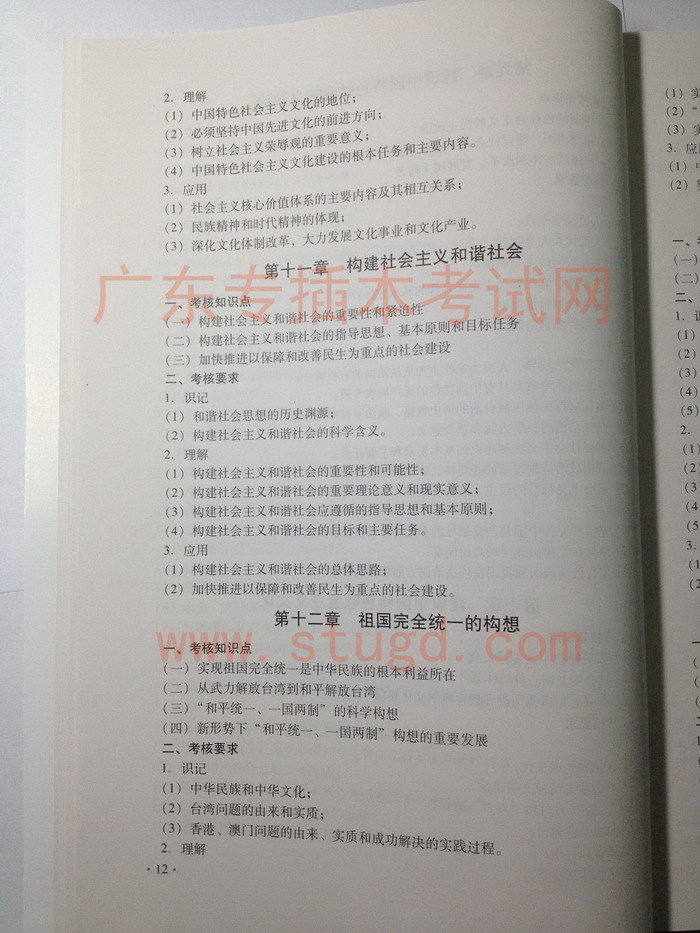 2. 理解
(1) 中国特色社会主义文化的地位;
(2) 必须坚持中国先进文化的前进方向;
(3) 树立社会主义荣辱观的重要意义;
(4) 中国特色社会主义文化建设的根本任务和主要内容。
3. 应用
(1) 社会主义核心价值体系的主要内容及其相互关系;
(2) 民族精神和时代精神的体现;
(3) 深化文化体制改革,大力发展文化事业和文化产业。
第十一章 构建社会主义和谐社会
广东专插本考试网
一、考核知识点
(一) 构建社会主义和谐社会的重要性和紧迫性
(二) 构建社会主义和谐社会的指导思想、基本原则和目标任务
(三) 加快推进以保障和改善民生为重点的社会建设
二、考核要求
1. 识记
(1) 和谐社会思想的历史渊源;
(2) 构建社会主义和谐社会的科学含义。
2. 理解
(1) 构建社会主义和谐社会的重要性和可能性;
(2) 构建社会主义和谐社会的重要理论意义和现实意义;
(3) 构建社会主义和谐社会应遵循的指导思想和基本原则;
(4) 构建社会主义和谐社会的目标和主要任务。
3. 应用
(1) 构建社会主义和谐社会的总体思路;
(2) 加快推进以保障和改善民生为重点的社会建设。
第十二章 祖国完全统一的构想
www.stugd.com
一、考核知识点
(一) 实现祖国完全统一是中华民族的根本利益所在
(二) 从武力解放台湾到和平解放台湾
(三) “和平统一、一国两制”的科学构想
(四) 新形势下“和平统一、一国两制”构想的重要发展
二、考核要求
1. 识记
(1) 中华民族和中华文化;
(2) 台湾问题的由来和实质;
(3) 香港、澳门问题的由来、实质和成功解决的实践过程。
2. 理解
· 12 ·